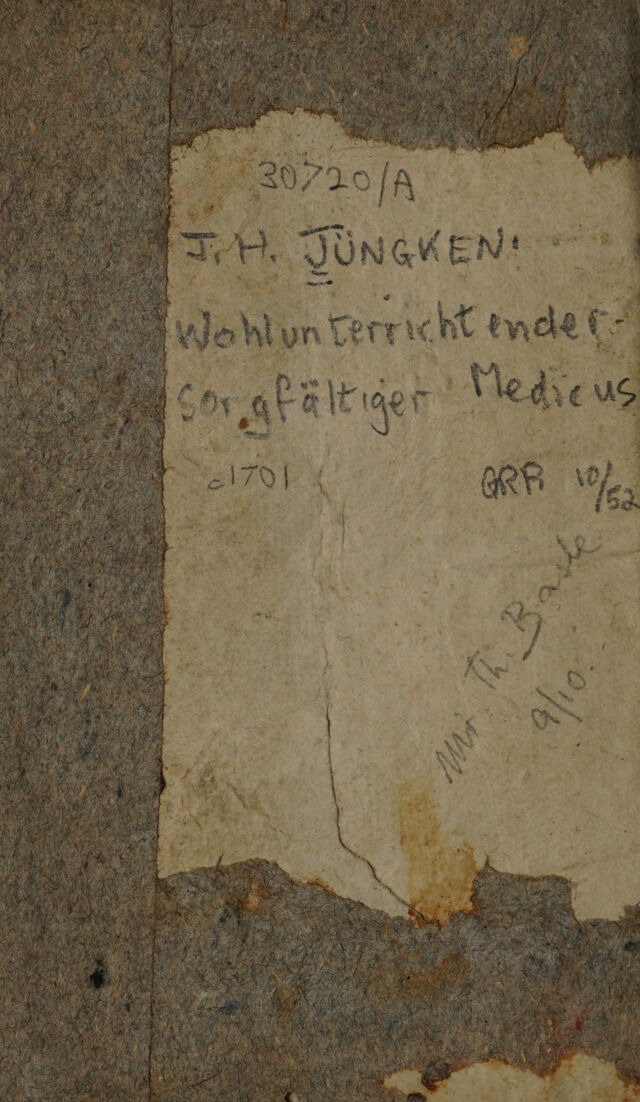 30720/A
J. H. JÜNGKEN.
Wohlunterrichtender
Sorgfältiger Medicus
c1701
GRR 10/52
Th.
9/10.